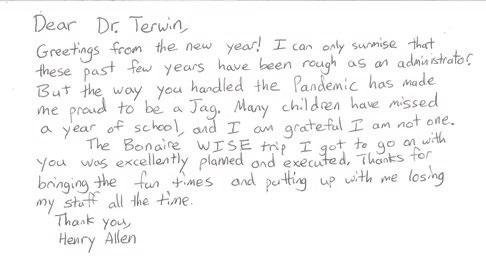 Dear Dr. Terwin,
Greetings from the new year! I can only surmise that
these past few years have been rough as an administrator.
But the way you handled the Pandemic has made
me proud to be a Jag. Many children have missed
a year of school, and I am grateful I am not one.
The Bonaire WISE trip I got to go on with
you was excellently planned and executed. Thanks for
bringing the fun times and putting up with me losing
my stuff all the time.
Thank you,
Henry Allen